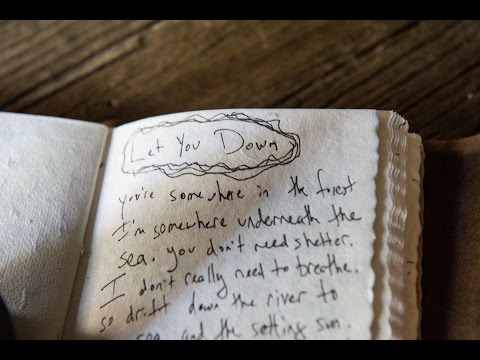 Let You Down
you're somewhere in the forest
I'm somewhere underneath the
sea. you don't need shelter.
I don't really need to breathe.
so drift down the river to
sea and the setting sun.